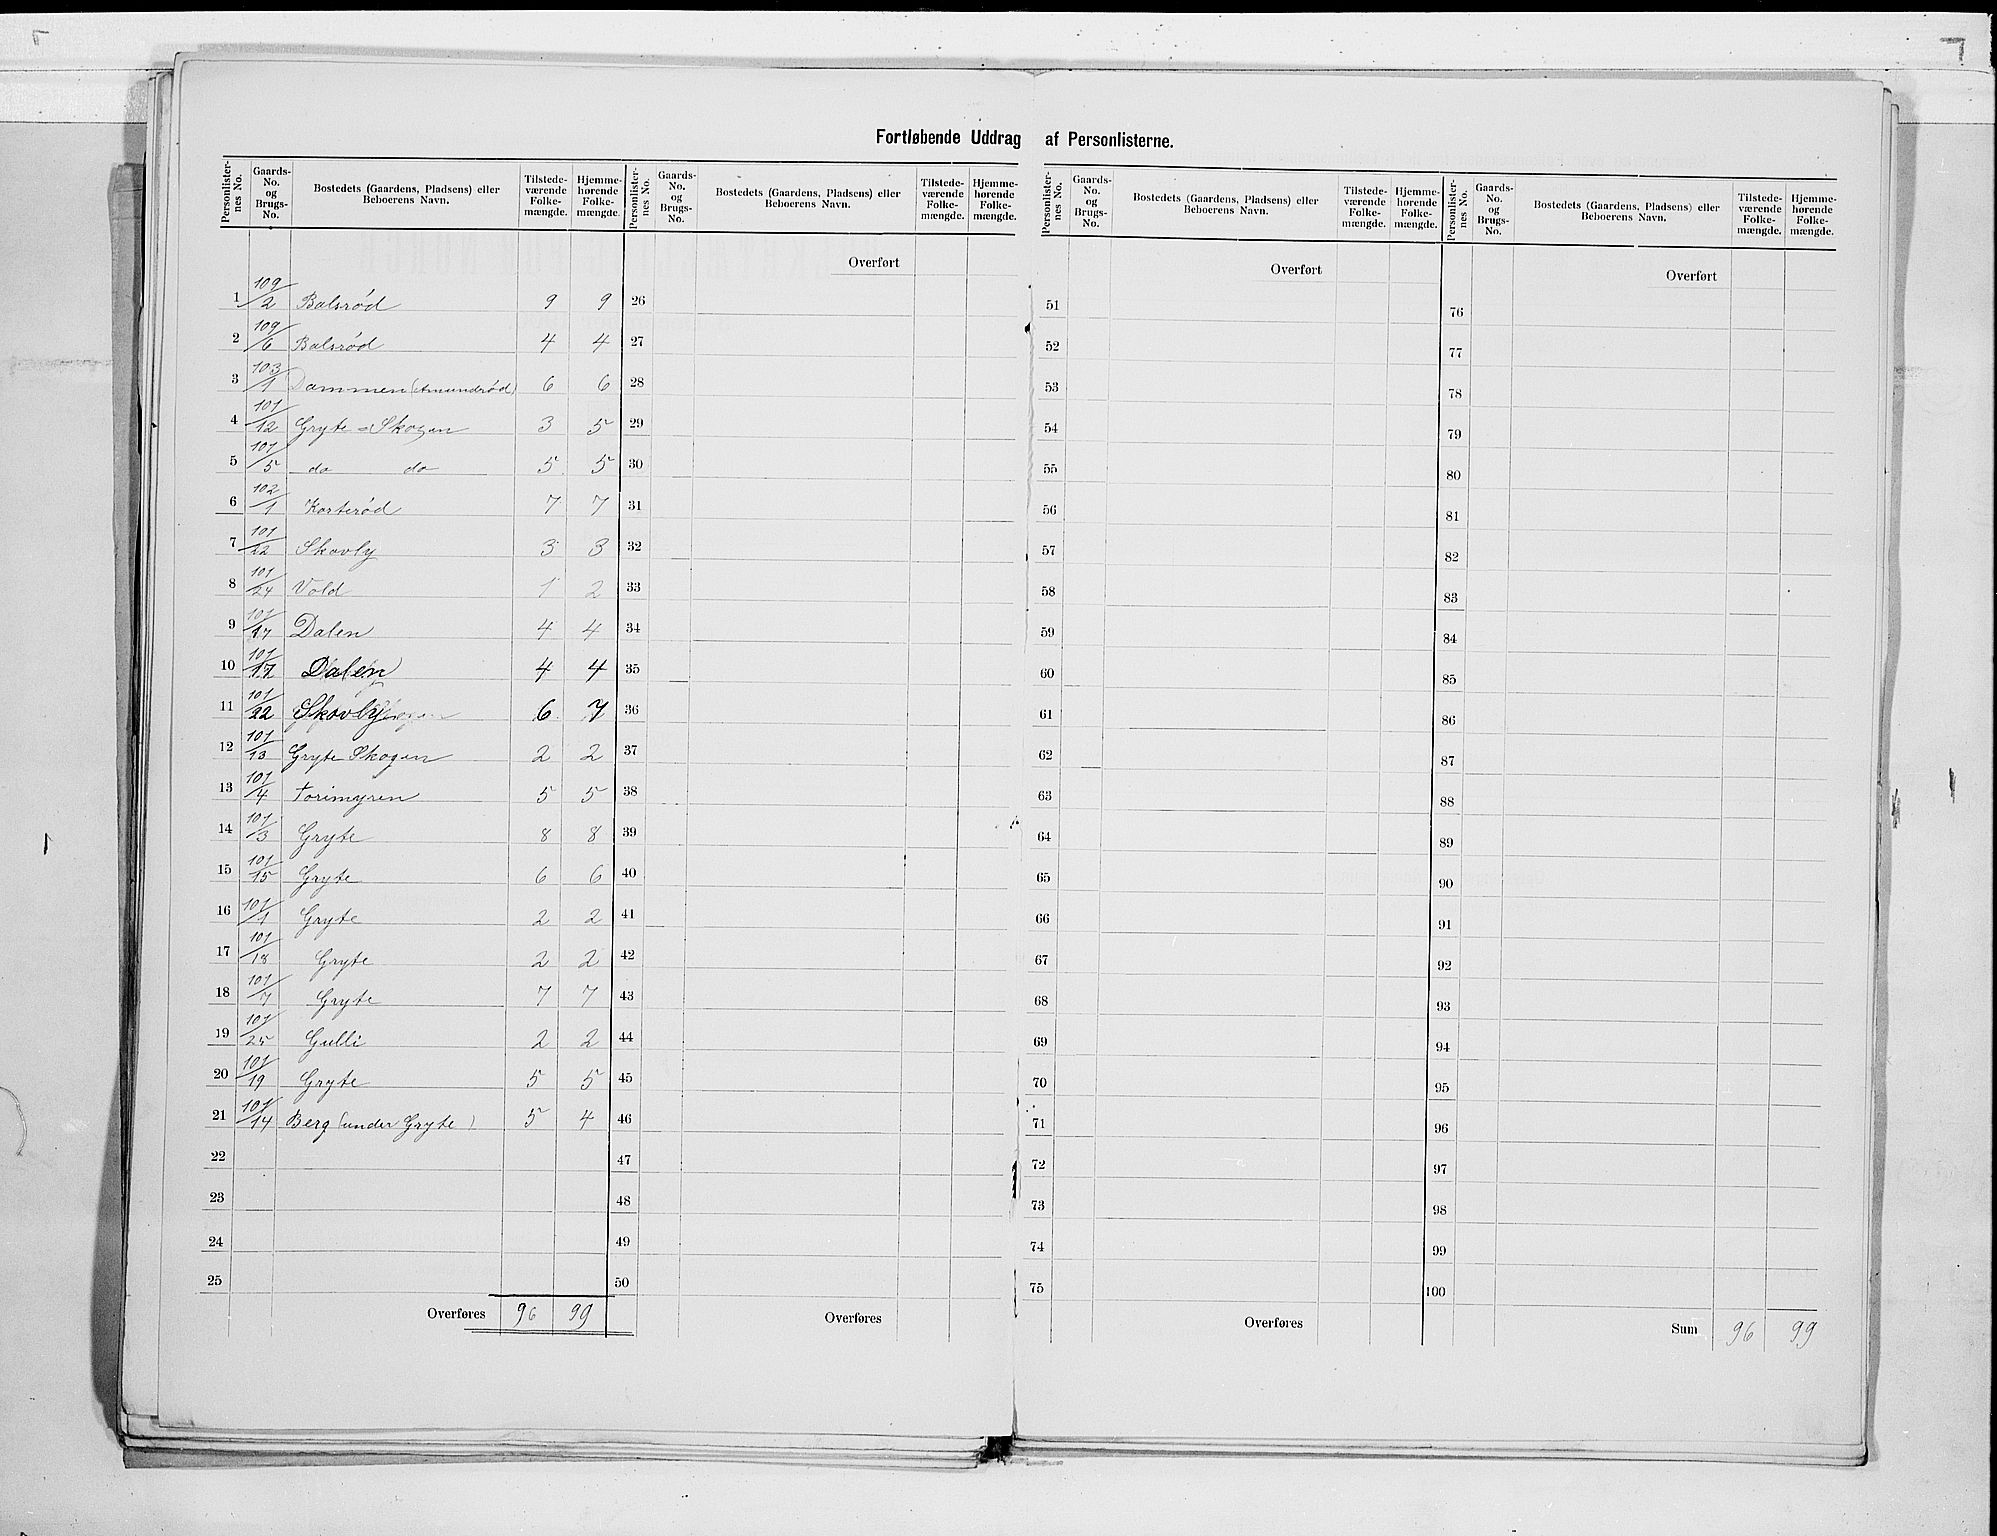 Fortløbende Uddrag af Personlisterne.
Personlisternes No. Gaards-No. og Brugs-No. Bostedets (Gaardens, Pladsens) eller Beboerens Navn. Tilstedeværende Folkemængde. Hjemmehørende Folkemængde.
Personlisternes No. Gaards-No. og Brugs-No. Bostedets (Gaardens, Pladsens) eller Beboerens Navn. Tilstedeværende Folkemængde. Hjemmehørende Folkemængde.
Personlisternes No. Gaards-No. og Brugs-No. Bostedets (Gaardens, Pladsens) eller Beboerens Navn. Tilstedeværende Folkemængde. Hjemmehørende Folkemængde.
Personlisternes No. Gaards-No. og Brugs-No. Bostedets (Gaardens, Pladsens) eller Beboerens Navn. Tilstedeværende Folkemængde. Hjemmehørende Folkemængde.
1 109/2 Balsrød 9 9
2 109/6 Balsrød 4 4
3 103/1 Dammen (Amundrød) 6 6
4 101/12 Gryte-Skogen 3 5
5 101/5 do do 5 5
6 102/1 Korterød 7 7
7 101/22 Skovly 3 3
8 101/24 Vold 1 2
9 101/17 Dalen 4 4
10 101/17 Dalen 4 4
11 101/22 Skovly 6 7
12 101/13 Gryte Skogen 2 2
13 101/4 Torimyren 5 5
14 101/3 Gryte 8 8
15 101/15 Gryte 6 6
16 101/1 Gryte 2 2
17 101/18 Gryte 2 2
18 101/7 Gryte 7 7
19 101/25 Gulli 2 2
20 101/19 Gryte 5 5
21 101/14 Berg (under Gryte) 5 4
22
23
24
25
Overføres 96 99
Overført
26
27
28
29
30
31
32
33
34
35
36
37
38
39
40
41
42
43
44
45
46
47
48
49
50
Overføres
Overført
51
52
53
54
55
56
57
58
59
60
61
62
63
64
65
66
67
68
69
70
71
72
73
74
75
Overføres
Overført
76
77
78
79
80
81
82
83
84
85
86
87
88
89
90
91
92
93
94
95
96
97
98
99
100
Sum 96 99